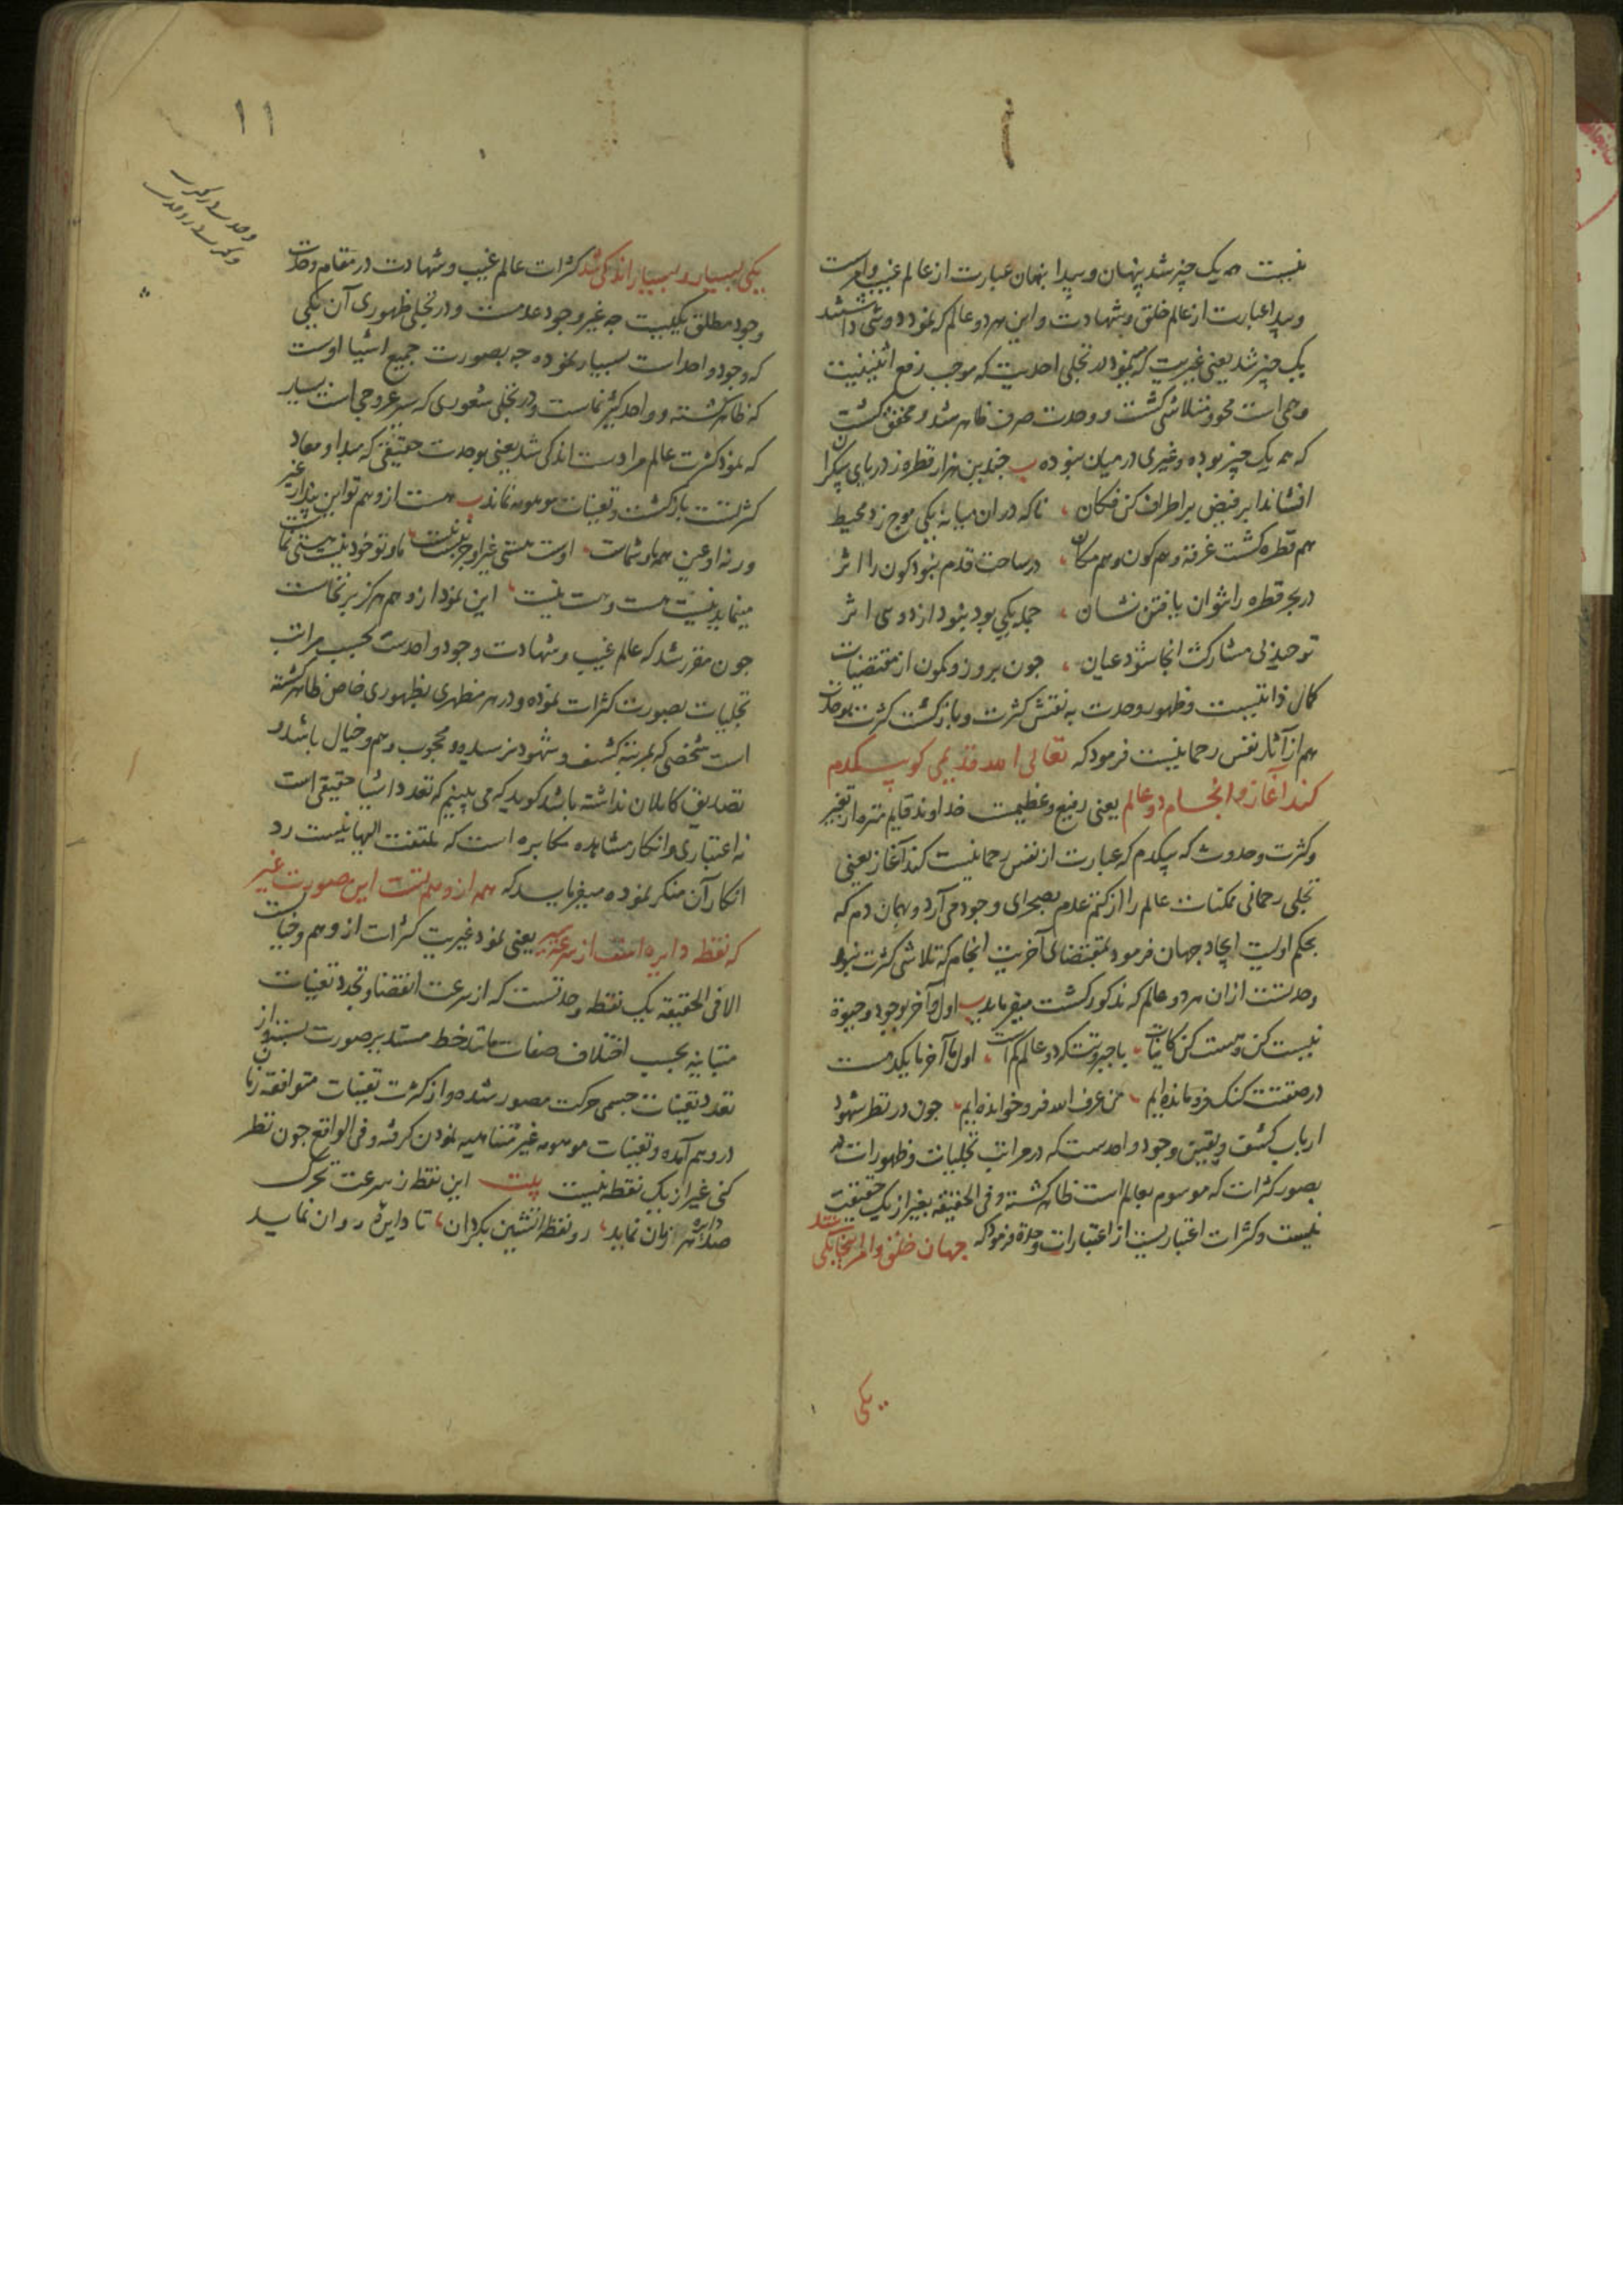 نیست همه یک چیز شد پنهان و پیدا پنهان عبارت از عالم غیب و امرست
و پیدا عبارت از عالم خلق و شهادت و این هر دو عالم که نمود دوئی داشتند
یک چیز شد یعنی غیریت که مینمود در تجلی احدیت که موجب رفع اثنینیت
وهمی است محو و متلاشی گشت و وحدت صرف ظاهر شد و محقق گشت
که همه یک چیز بوده و غیری در میان نبوده چندین هزار قطره ز دریای بیکران
افشاند ابر فیض بر اطراف کن فکان ناگه در ان میانه یکی موج زد محیط
هم قطره گشت غرقه و هم کون و هم مکان در ساحت قدم نبود کون را اثر
در بحر قطره را نتوان یافتن نشان جمله یکی بود نبود از دوئی اثر
توحید بی مشارکت انجا شود عیان چون بروز و کمون از مقتضیات
کمال ذاتیست و ظهور وحدت به نقش کثرت و بازگشت کثرت بوحدت
هم از آثار نفس رحمانیست فرمود که تعالی الله قدیمی کو بیکدم
کند آغاز و انجام دو عالم یعنی رفیع و عظیمست خداوند قایم منزه از تغیر
و کثرت و حدوث که بیکدم که عبارت از نفس رحمانیست کند آغاز یعنی
تجلی رحمانی ممکنات عالم را از کتم عدم بصحرای وجود می آرد و بهمان دم که
بحکم اولیت ایجاد جهان فرمود بمقتضای آخریت انجام که تلاشی کثرت بنور
وحدتست ازان هر دو عالم که مذکور گشت میفرماید اول و آخر بوجود و حیوة
نیست کن و هست کن کاینات با جبروتت که دو عالم کم است اول ما آخر ما یکدمست
در صفتت گنگ فرو مانده ایم من عرف الله فرو خوانده ایم چون در نظر شهود
ارباب کشف و یقین وجود واحدست که در مراتب تجلیات و ظهورات
بصور کثرات که موسوم بعالم است ظاهر گشته و فی الحقیقه بغیر از یک حقیقت
نیست و کثرات اعتباریست از اعتبارات وحدة فرمود که جهان خلق و امر اینجا یکی شد
یکی
۱۱
یکی بسیار و بسیار اندکی شد کثرات عالم غیب و شهادت در مقام وحدت
وجود مطلق یکیست چه غیر وجود عدمست و در تجلی ظهوری آن یکی
که وجود واحد است بسیار نموده چه بصورت جمیع اشیا اوست
که ظاهر گشته و واحد کثیرنماست و در تجلی شعوری که سیر عروجی است بسیار
که نمود کثرت عالم مرادست اندکی شد یعنی بوحدت حقیقی که مبدا و معاد
کثرتست بازگشت و تعینات موهومه نماند هست از وهم تو این پندار غیر
ورنه او عین همه ما و شماست اوست هستی غیر او جز نیست ما و تو خود نیست هستی نماست
مینماید نیست هست و هست نیست این نمود از وهم هر کز برنخاست
چون مقرر شد که عالم غیب و شهادت وجود واحدست بحسب مراتب
تجلیات بصورت کثرات نموده و در هر مظهری بظهوری خاص ظاهر گشته
است شخصی که بمرتبه کشف و شهود نرسیده و محجوب وهم و خیال باشد و
تصدیق کاملان نداشته باشد گوید که می بینیم که تعدد اشیا حقیقی است
نه اعتباری و انکار مشاهده مکابره است که ملتفت الیها نیست رد
انکار آن منکر نموده میفرماید که همه از وهم تست این صورت غیر
که نقطه دایره است از سرعت سیر یعنی نمود غیریت کثرات از وهم و خیالست
الا فی الحقیقه یک نقطه وحدتست که از سرعت انقضا و تجدد تعینات
متباینه بحسب اختلاف صفات مانند خط مستدیر صورت بسته و از
تعدد تعینات جسمی حرکت مصور شده و از کثرت تعینات متوافقه زمان
در وهم آمده و تعینات موهومه غیر متناهیه نمودن گرفته و فی الواقع چون نظر
کنی غیر از یک نقطه نیست بیت این نقطه ز سرعت تحرک
صد دایره هر زمان نماید رو نقطه آتشین بگردان تا دایره روان نماید